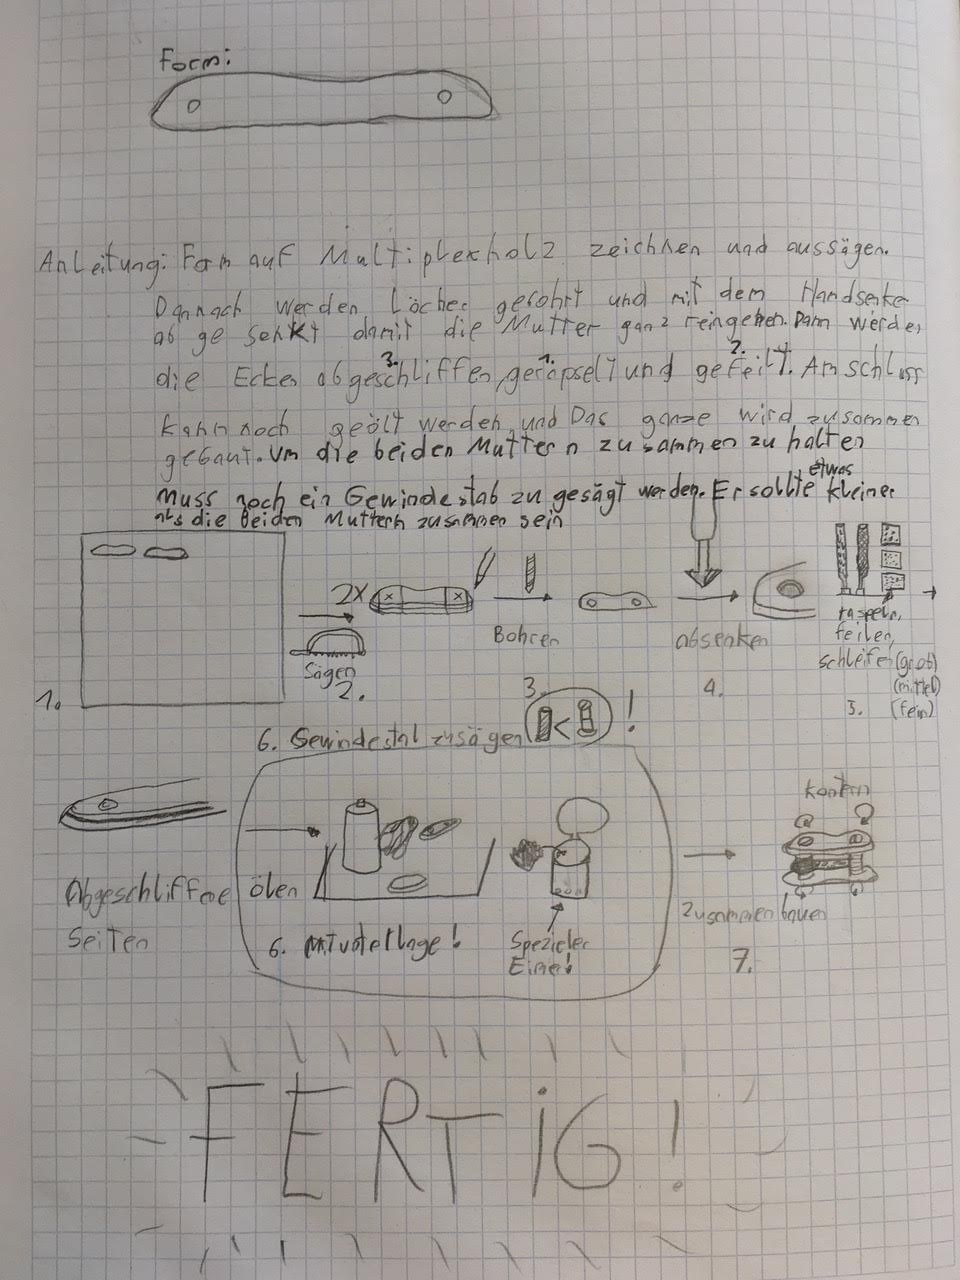 Form:
Anleitung: Form auf Multiplexholz zeichnen und aussägen.
Dannach werden Löcher gebohrt und mit dem Handsenker
ab ge senkt damit die Mutter ganz reingehen. Dann werden
die Ecken abgeschliffen, geräpselt und gefeilt. Am schluss
3. 1. 2.
kann noch geölt werden und Das ganze wird zusammen
gebaut. Um die beiden Muttern zusammen zu halten
muss noch ein Gewindestab zu gesägt werden. Er sollte etwas kleiner
als die beiden Muttern zusammen sein
1.
2x
Sägen
2.
Bohren
3.
absenken
4.
raspeln,
feilen,
schleifen (grob)
(mittel)
(fein)
5.
6. Gewindestab zusägen < !
Abgeschliffne
Seiten
ölen
6. Mit
Spezieler
Eimer!
kontern
zusammen bauen
7.
FERTiG!